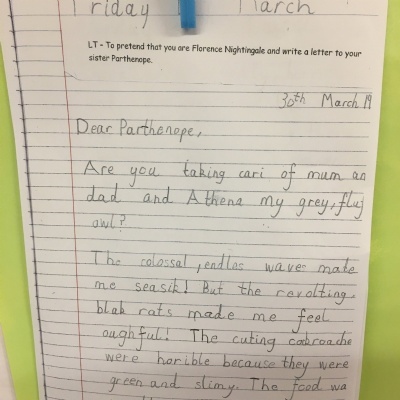 Friday March
LT - To pretend that you are Florence Nightingale and write a letter to your
sister Parthenope.
30th March 19
Dear Parthenope,
Are you taking cari of mum an
dad and Athena my grey, fluf
owl?
The colossal, endles waves mate
me seasik! But the revolting,
blak rats made me feel
oughful! The cuting cobroache
were horible because they were
green and slimy. The food wa